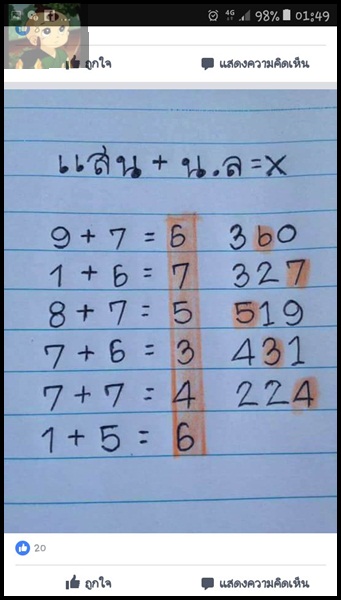 4G 98% 01:49
ถูกใจ แสดงความคิดเห็น
แสน + น.ล = X
9 + 7 = 6 360
1 + 6 = 7 327
8 + 7 = 5 519
7 + 6 = 3 431
7 + 7 = 4 224
1 + 5 = 6
20
ถูกใจ แสดงความคิดเห็น